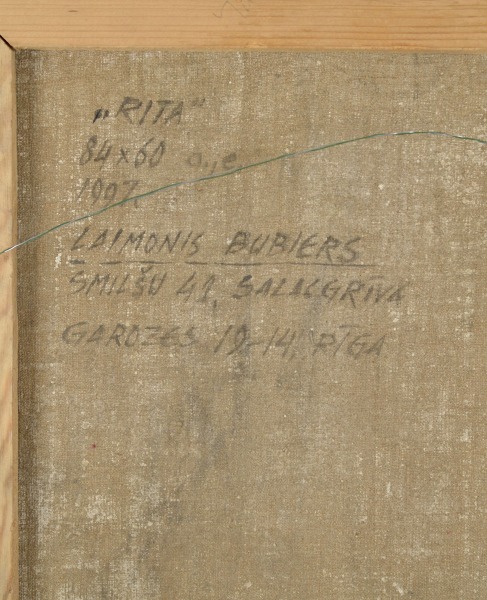 „RITA"
84x60 a., e.
1997.
LAIMONIS BUBIERS
SMILŠU 41, SALACGRĪVA
GAROZES 19-14, RĪGA